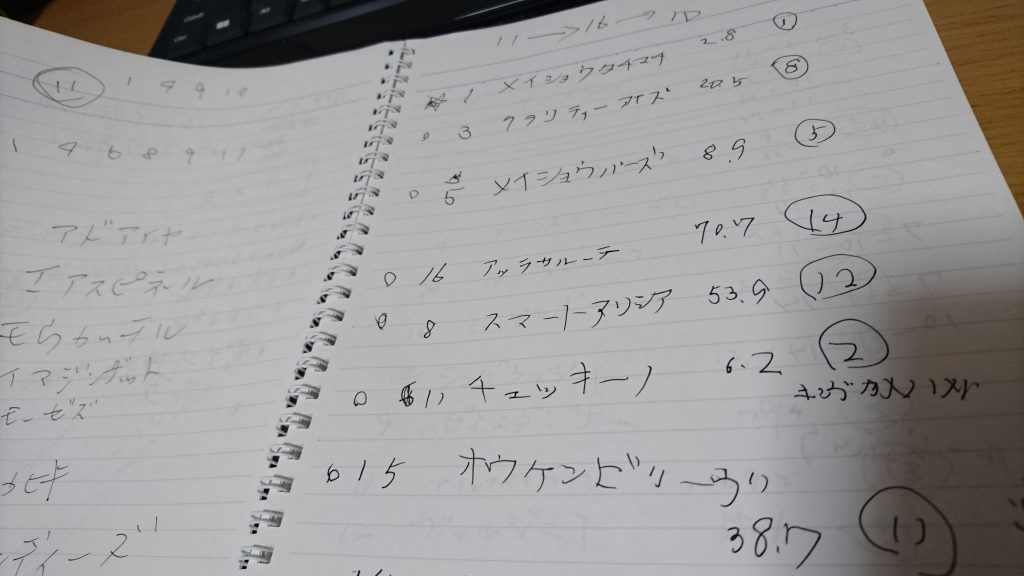 11 1 4 9 10
1 4 6 8 9 11
アドアイヤ
エアスピネル
モウカッテル
イマジンガット
モーゼズ
11→16→10
1 メイショウタチマチ 2.8 1
0 3 クラリティーアイズ 20.5 8
0 5 メイショウバーズ 8.9 5
0 16 アッラサルーテ 70.7 14
0 8 スマートアリシア 53.9 12
0 11 チェッキーノ 6.2 2
キングカメハメハ
0 15 オウケンビリーヴ
38.7 11